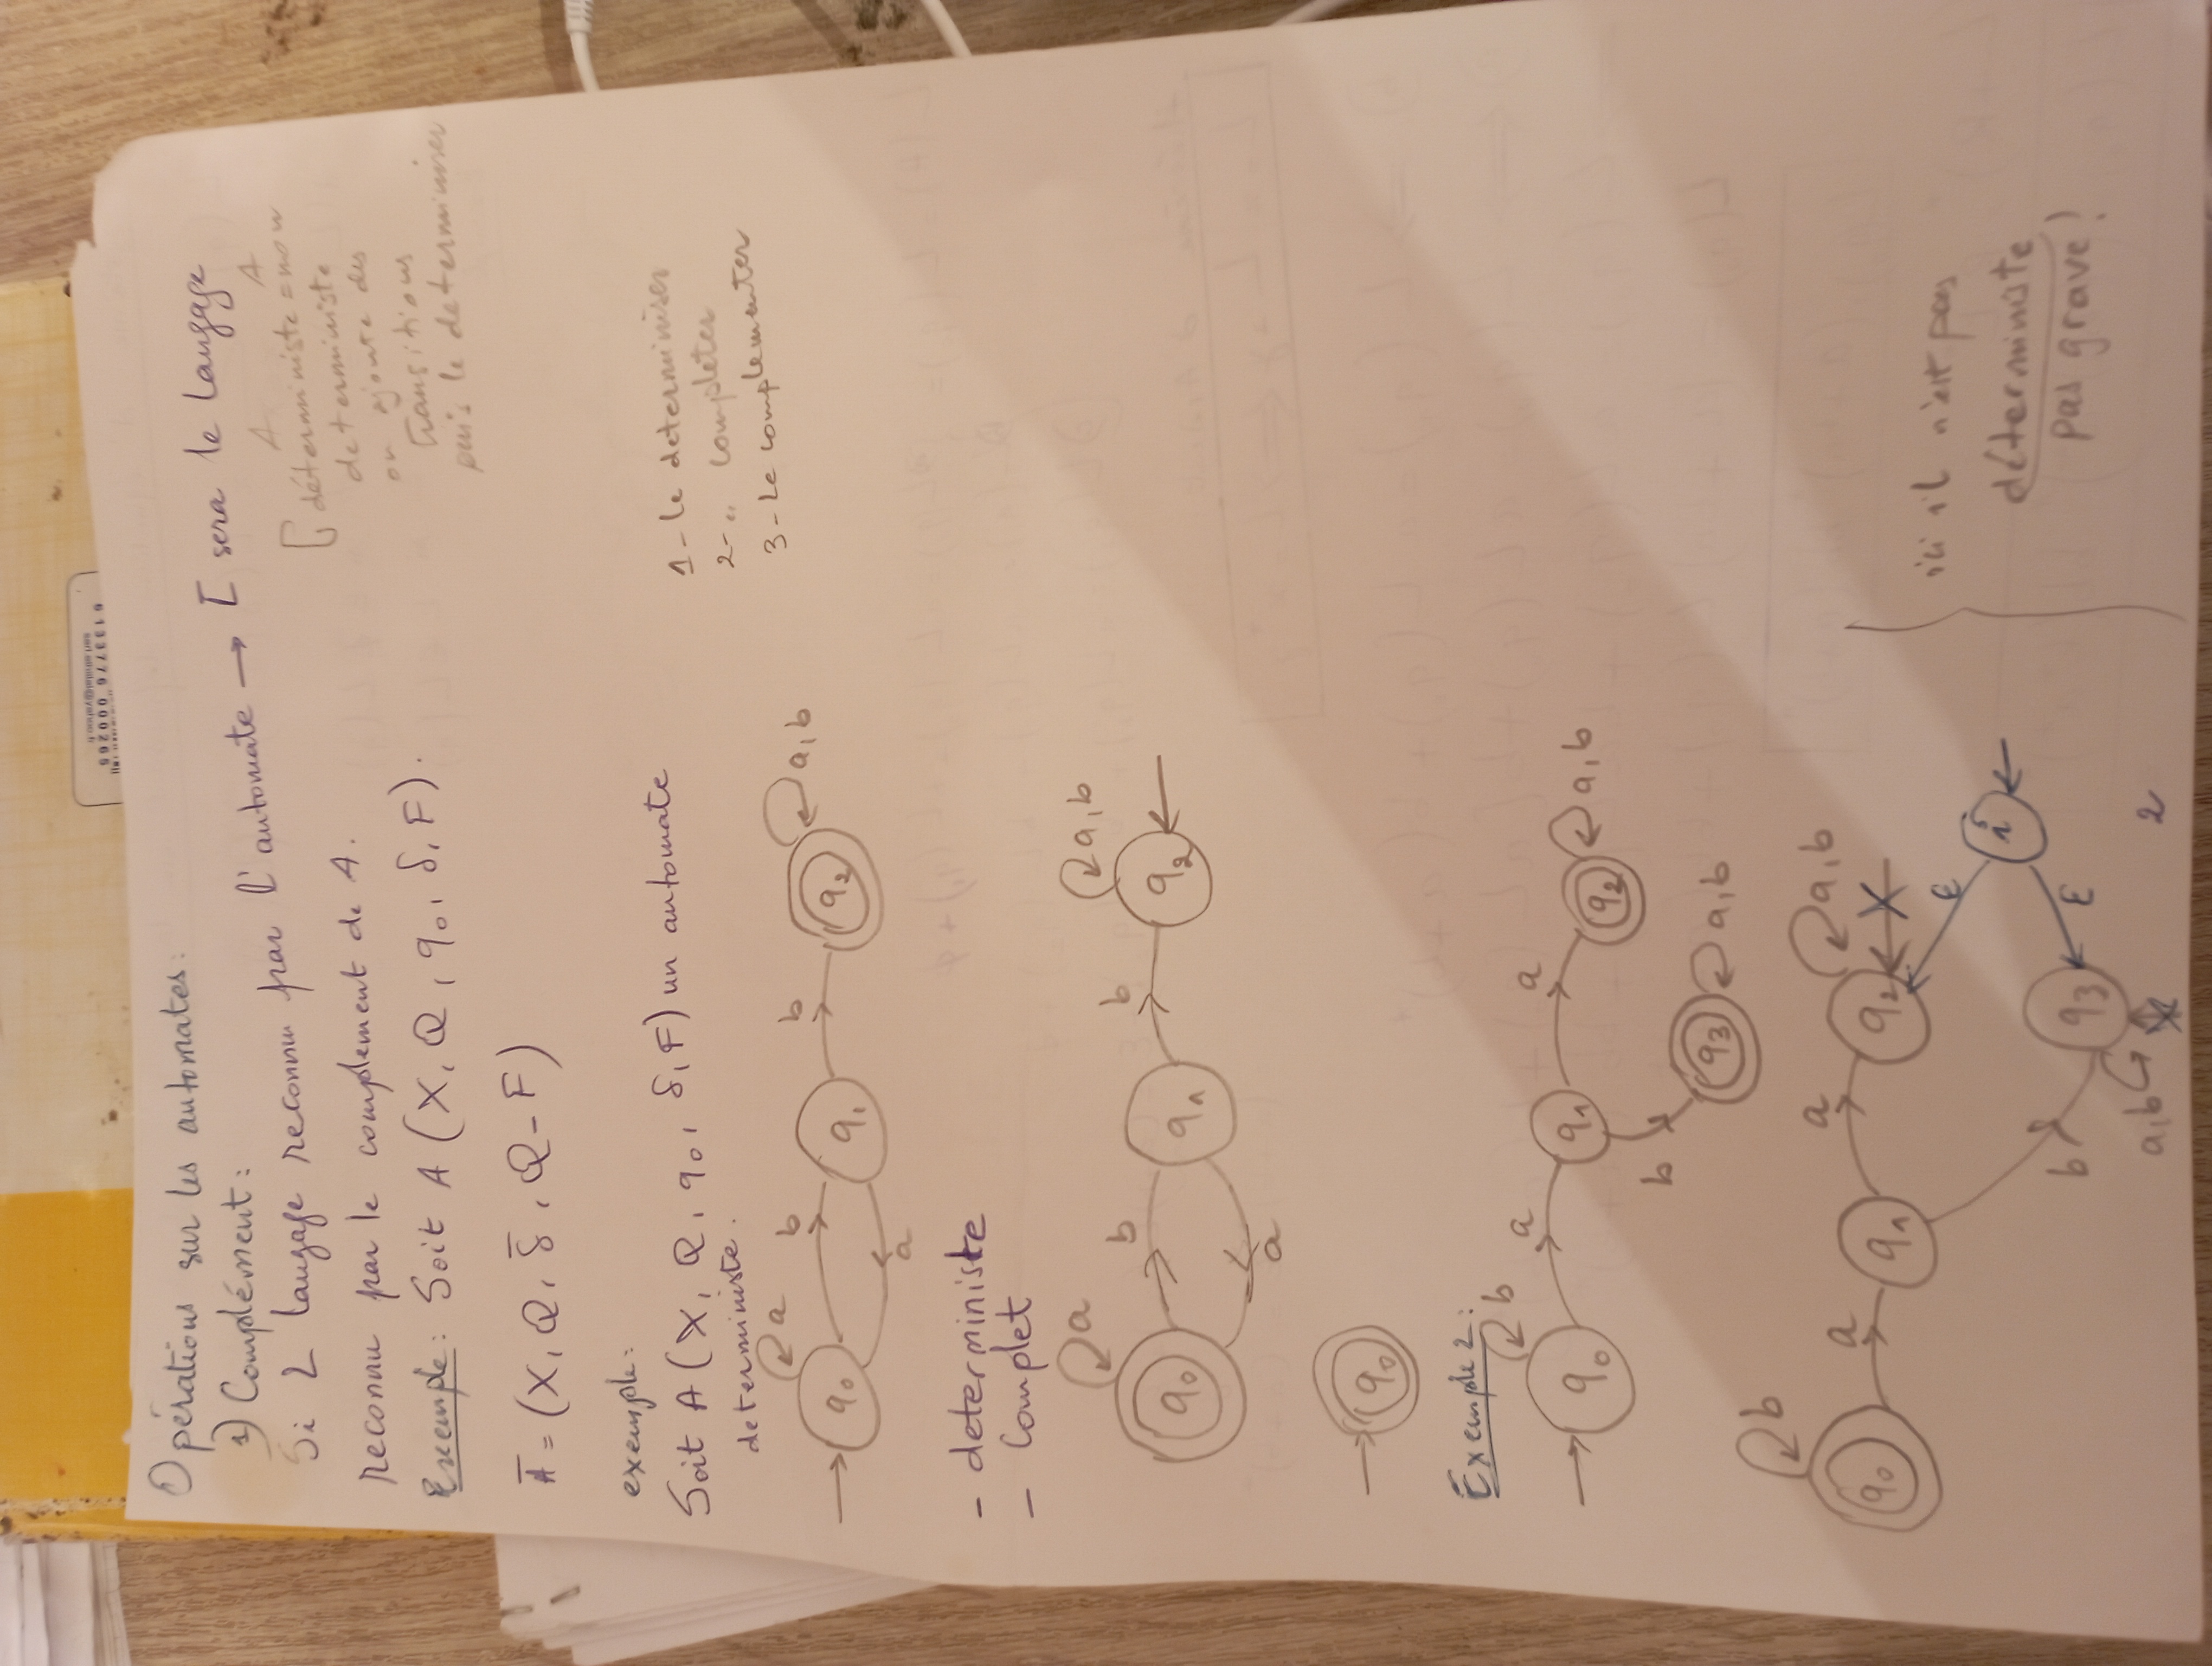 Opérations sur les automates:
1) Complément:
Si L langage reconnu par l'automate → L̅ sera le langage
reconnu par le complement de A.
A A
déterministe = non
deterministe
on ajoute des
transitions
puis le determiniser
Exemple: Soit A (X, Q, q0, δ, F).
A̅ = (X, Q, δ̅, Q-F)
exemple:
Soit A (X, Q, q0, δ, F) un automate
deterministe.
1- le determiniser
2- " completer
3- Le complementer
a b b a, b
q0 q1 q2
a
- deterministe
- Complet
a b b a, b
q0 q1 q2
a
q0
Exemple 2:
b a a
q0 q1 q2 a, b
b
q3 a, b
b
a a a, b
q0 q1 q2
ε
i
b q3 ε
a, b
ici il n'est pas
déterministe
pas grave!
2
6133776 000265